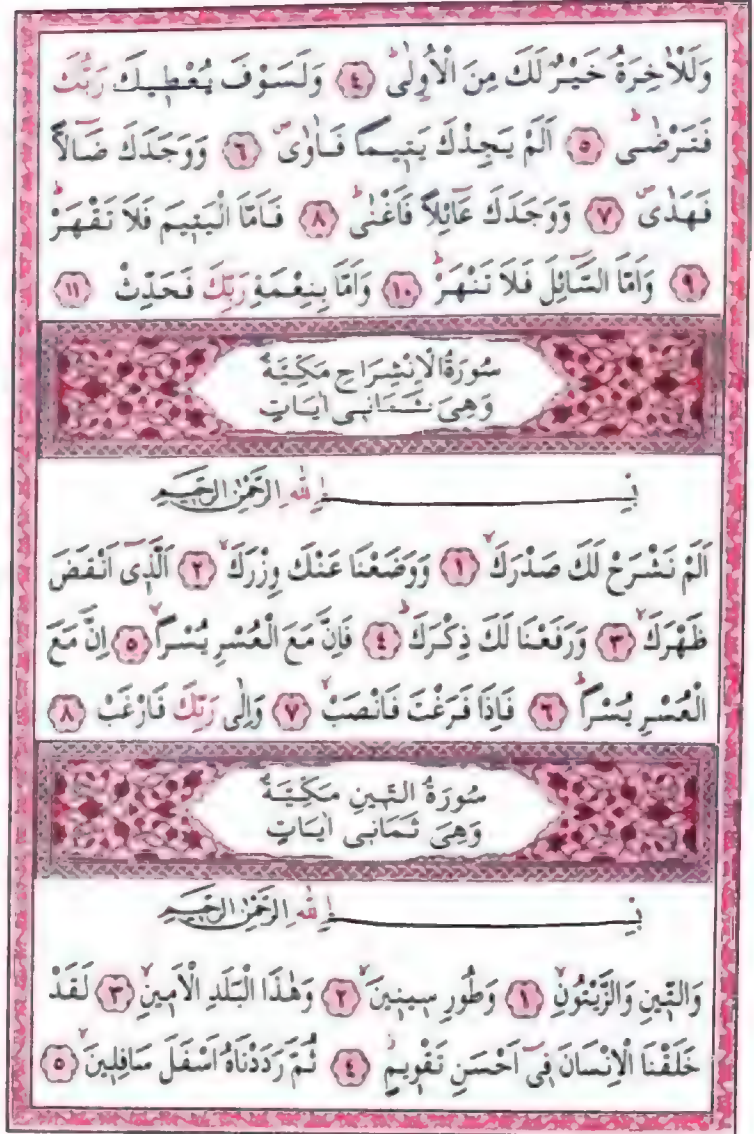 وَلَلْاٰخِرَةُ خَيْرٌ لَكَ مِنَ الْاُولٰىۜ ٤ وَلَسَوْفَ يُعْط۪يكَ رَبُّكَ
فَتَرْضٰىۜ ٥ اَلَمْ يَجِدْكَ يَت۪يمًا فَاٰوٰىۖ ٦ وَوَجَدَكَ ضَٓالًّا
فَهَدٰىۖ ٧ وَوَجَدَكَ عَٓائِلًا فَاَغْنٰىۜ ٨ فَاَمَّا الْيَت۪يمَ فَلَا تَقْهَرْۜ
٩ وَاَمَّا السَّٓائِلَ فَلَا تَنْهَرْۜ ١٠ وَاَمَّا بِنِعْمَةِ رَبِّكَ فَحَدِّثْ ١١
سُورَةُ الْاِنْشِرَاحِ مَكِّيَّةٌ
وَهِيَ ثَمَانٖى اٰيَاتٍ
بِسْمِ اللّٰهِ الرَّحْمٰنِ الرَّح۪يمِ
اَلَمْ نَشْرَحْ لَكَ صَدْرَكَۙ ١ وَوَضَعْنَا عَنْكَ وِزْرَكَۙ ٢ اَلَّذ۪ٓى اَنْقَضَ
ظَهْرَكَۙ ٣ وَرَفَعْنَا لَكَ ذِكْرَكَۜ ٤ فَاِنَّ مَعَ الْعُسْرِ يُسْرًاۙ ٥ اِنَّ مَعَ
الْعُسْرِ يُسْرًاۜ ٦ فَاِذَا فَرَغْتَ فَانْصَبْۙ ٧ وَاِلٰى رَبِّكَ فَارْغَبْ ٨
سُورَةُ التّ۪ينِ مَكِّيَّةٌ
وَهِيَ ثَمَانٖى اٰيَاتٍ
بِسْمِ اللّٰهِ الرَّحْمٰنِ الرَّح۪يمِ
وَالتّ۪ينِ وَالزَّيْتُونِۙ ١ وَطُورِ س۪ين۪ينَۙ ٢ وَهٰذَا الْبَلَدِ الْاَم۪ينِۙ ٣ لَقَدْ
خَلَقْنَا الْاِنْسَانَ ف۪ٓى اَحْسَنِ تَقْو۪يمٍۘ ٤ ثُمَّ رَدَدْنَاهُ اَسْفَلَ سَافِل۪ينَۙ ٥